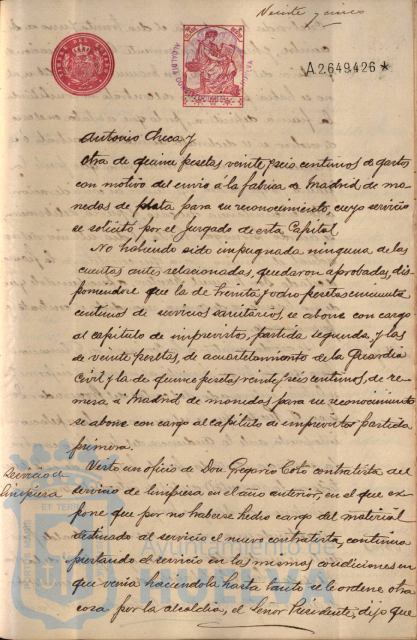 Veinte y cinco
A2649426*
Antonio Checa y
Otra de quince pesetas veinte y seis centimos de gastos
con motivo del envio á la fabrica de Madrid de mo
nedas de plata para su reconocimiento, cuyo servicio
se solicitó por el Juzgado de esta Capital
No habiendo sido impugnada ninguna de las
cuentas antes relacionadas, quedaron aprobadas, dis-
poniendose que la de treinta y ocho pesetas cincuenta
centimos de servicios sanitarios, se abone con cargo
al capitulo de imprevistos, partida segunda, y las
de veinte pesetas, de acuartelamiento de la Guardia
Civil y la de quince pesetas veinte y seis centimos, de re-
mesa á Madrid de monedas para su reconocimiento
se abone con cargo al capitulo de imprevistos partida
primera.
Servicio de
limpieza
Visto un oficio de Don Gregorio Coto contratista del
servicio de limpieza en el año anterior, en el que ex-
pone que por no haberse hecho cargo del material
destinado al servicio el nuevo contratista, continua
prestando el servicio en las mismas condiciones en
que venia haciendola hasta tanto se le ordene otra
cosa por la alcaldia, el Señor Presidente, dijo que
Ayuntamiento de
HUELVA